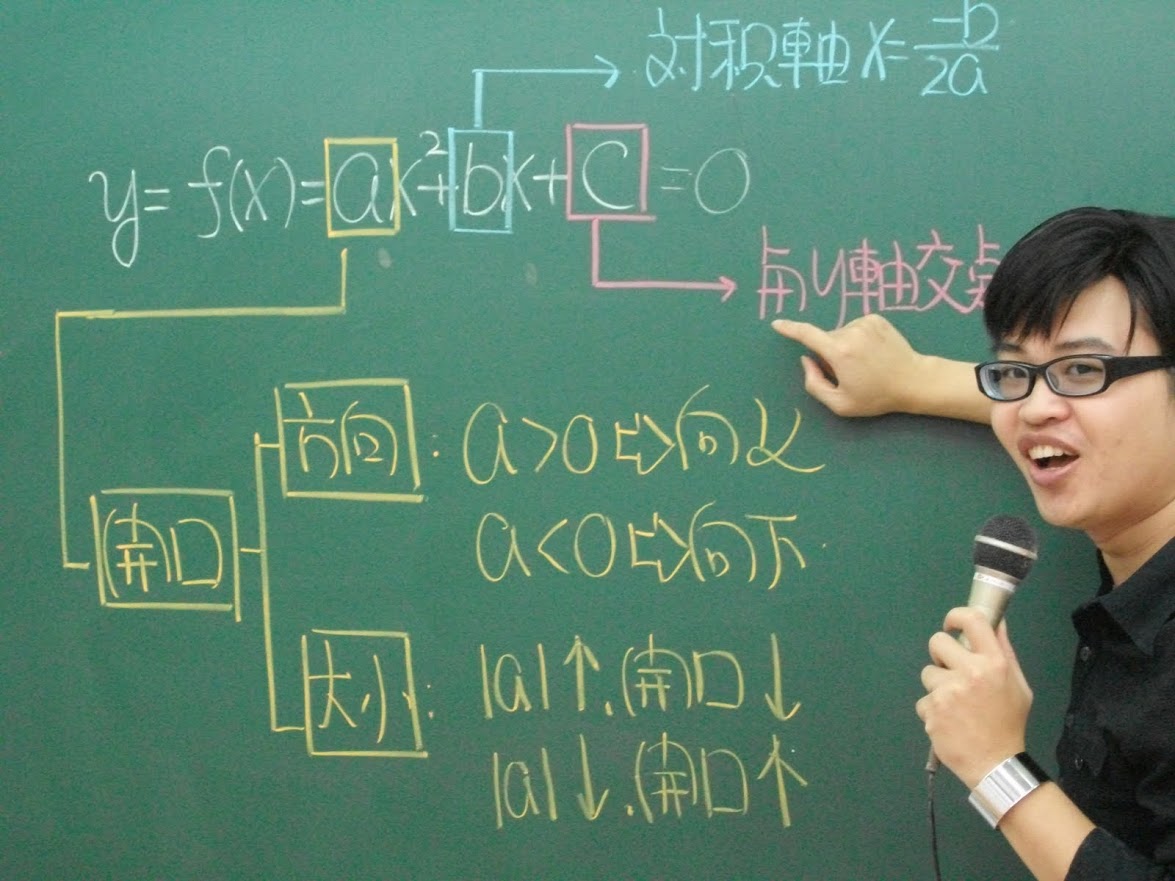 对积軸 x=-b/2a
y=f(x)=ax²+bx+c=0
与y軸交点
方向: a>0⇨向上
a<0⇨向下
開口
大小: |a|↑.開口↓
|a|↓.開口↑